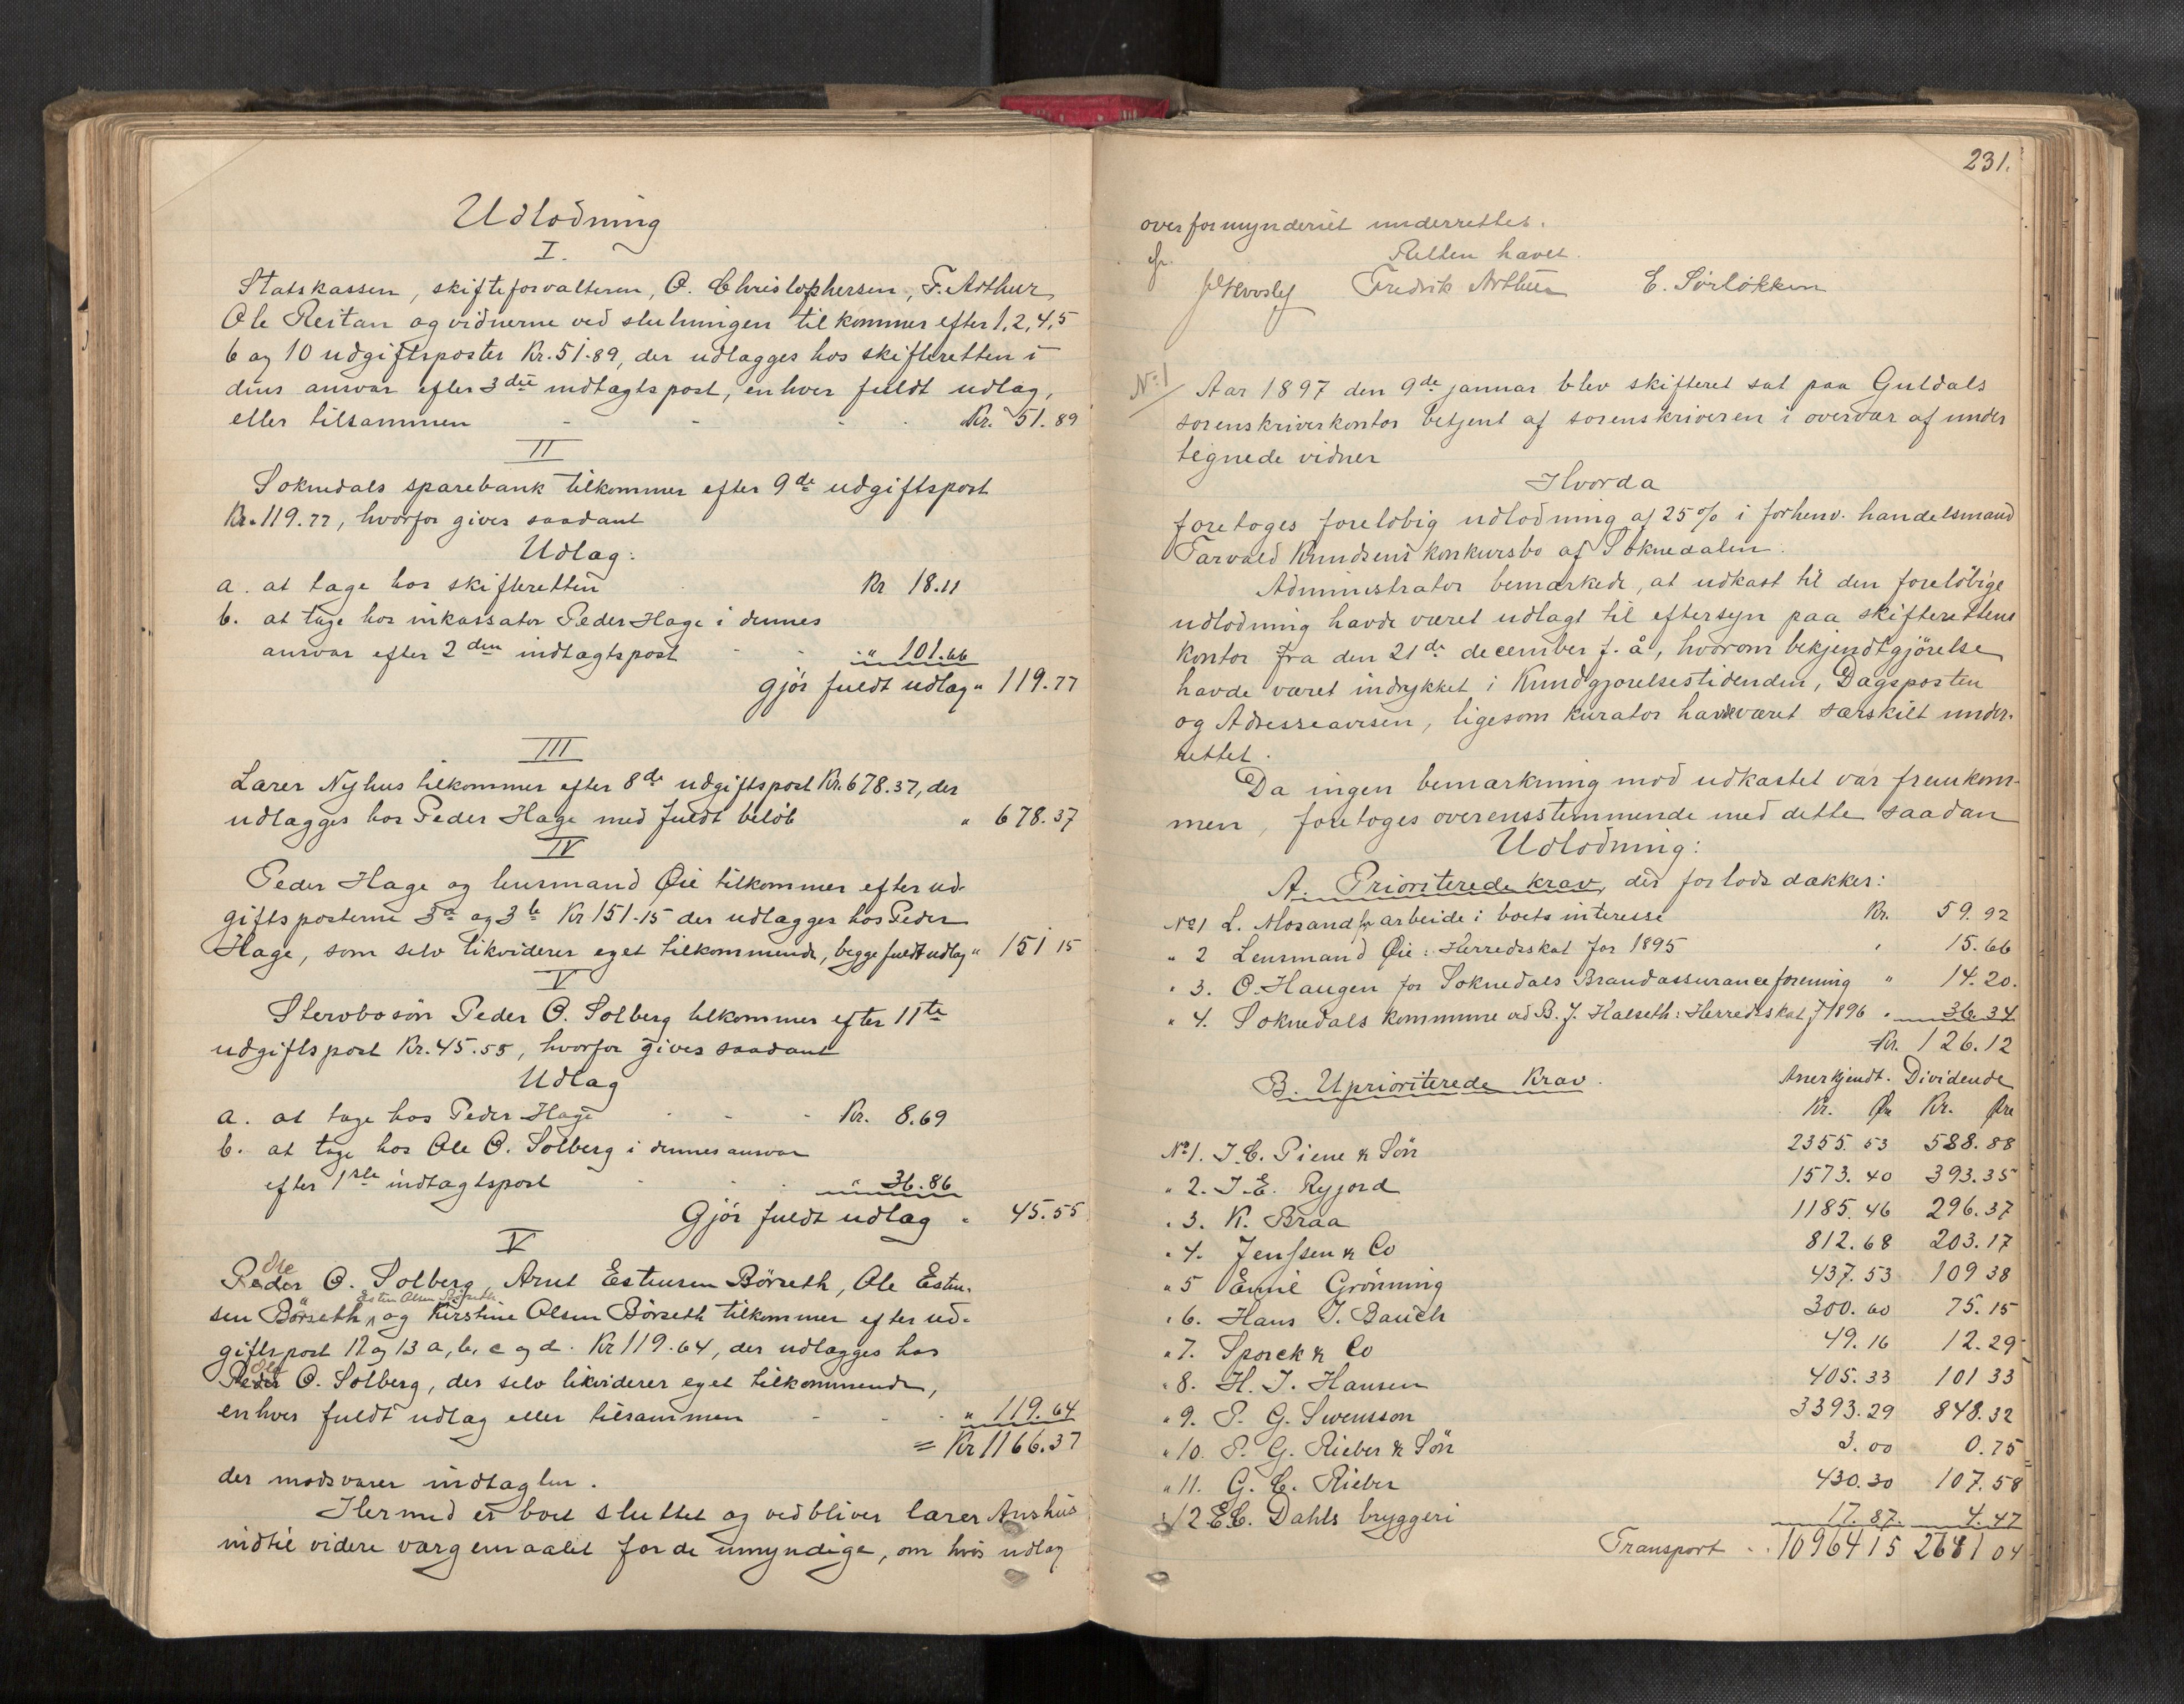 Udlodning
I.
Statskassen, skifteforvalteren, O. Christophersen, F. Arthur
Ole Reitan og vidnerne ved slutningen tilkommer efter 1, 2, 4, 5
6 og 10 udgiftsposter Kr. 51.89, der udlægges hos skifteretten i
dens ansvar efter 3die indtægtspost, enhver fuldt udlæg,
eller tilsammen - - - . Kr. 51.89
II
Soknedals sparebank tilkommer efter 9de udgiftspost
Kr. 119.77, hvorfor gives saadant
Udlæg:
a. at tage hos skifteretten Kr 18.11
b. at tage hos inkassator Peder Hage i dennes
ansvar efter 2den indtægtspost - - " 101.66
gjør fuldt udlæg " 119.77
III
Lærer Nyhus tilkommer efter 8de udgiftspost Kr. 678.37, der
udlægges hos Peder Hage med fuldt beløb " 678.37
IV
Peder Hage og lensmand Øie tilkommer efter ud-
giftsposterne 3a og 3b Kr 151.15 der udlægges hos Peder
Hage, som selv likviderer eget tilkommende, begge fuldt udlæg " 151 15
V
Stervbosøn Peder O. Solberg tilkommer efter 11te
udgiftspost Kr. 45.55, hvorfor gives saadant
Udlæg
a. at tage hos Peder Hage - - - Kr. 8.69
b. at tage hos Ole O. Solberg i dennes ansvar
efter 1ste indtægtspost - - . " 36.86
Gjør fuldt udlæg " 45.55
V
Ole
Peder O. Solberg, Arnt Estensen Børseth, Ole Esten-
Esten Olsen Børseth
sen Børseth, og Kirstine Olsen Børseth tilkommer efter ud-
giftspost 12 og 13 a, b, c og d. Kr 119.64, der udlægges hos
Ole
Peder O. Solberg, der selv likviderer eget tilkommende,
enhver fuldt udlæg eller tilsammen - - - " 119.64
= Kr 1166.37
der modsvarer indtægten.
Hermed er boet sluttet og vedbliver lærer Aushus
indtil videre værgemaalet for de umyndige, om hvis udlæg
231.
overformynderiet underrettes.
Retten hævet.
Fredrik Arthur E. Sørløkken
No 1
Aar 1897 den 9de januar blev skifteret sat paa Guldals
sorenskriverkontor betjent af sorenskriveren i overvær af under
tegnede vidner
Hvorda
foretoges foreløbig udlodning af 25% i forhenv. handelsmand
Tarvald Knudsens konkursbo af Soknedalen.
Administrator bemærkede, at udkast til den foreløbige
udlodning havde været udlagt til eftersyn paa skifterettens
kontor fra den 21de december f. å, hvorom bekjendtgjørelse
havde været indrykket i Kundgjørelsestidenden, Dagsposten
og Adresseavisen, ligesom kurator havde været særskilt under-
rettet.
Da ingen bemærkning mod udkastet var fremkom-
men, foretoges overensstemmende med dette saadan
Udlodning:
A. Prioriterede krav, der forlods dækkes:
No 1 L. Mosand for arbeide i boets interesse Kr. 59.92
" 2 Lensmand Øie: Herredsskat for 1895 " 15.66
" 3. O. Haugen for Soknedals Brandassuranceforening " 14.20.
" 4. Soknedals kommune ved B. J. Halseth: Herredsskat f 1896 " 36 34
Kr. 126.12
B. Uprioriterede Krav. Anerkjendt. Dividende
Kr. Øre Kr. Øre
No 1. J. C. Piene & Søn 2355.53 588.88
" 2. J. E. Ryjord 1573.40 393.35
" 3. K. Braa 1185.46 296.37
" 4. Jenssen & Co 812.68 203.17
" 5 Emil Grønning 437.53 109 38
" 6. Hans J. Bauch 300.60 75.15
" 7. Sporck & Co 49.16 12.29
" 8. H. J. Hansen 405.33 101 33
" 9. P. G. Svensson 3393.29 848.32
" 10. P. G. Rieber & Søn 3.00 0.75
" 11. G. C. Rieber 430.30 107.58
" 12 E. C. Dahls bryggeri 17.87. 4.47
Transport . . 10964 15 2681 04